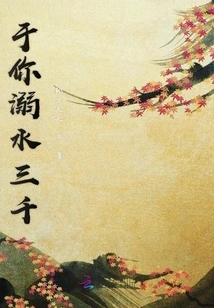 于你溺水三千